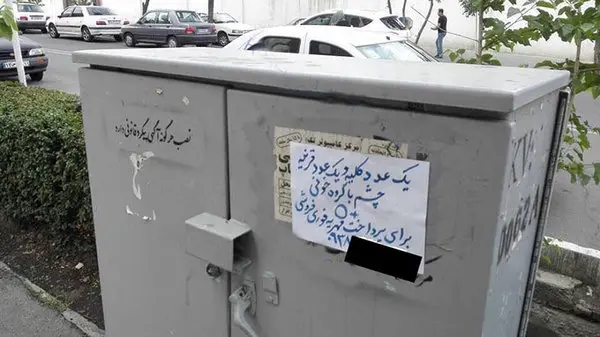 نصب هرگونه آگهی پیگرد قانونی دارد
مرکز کامپیوتر
یک عدد کلیه و یک عدد قرنیه
چشم با گروه خونی
O+
برای پرداخت مهریه فوری فروشی
۰۹۳۸
KV